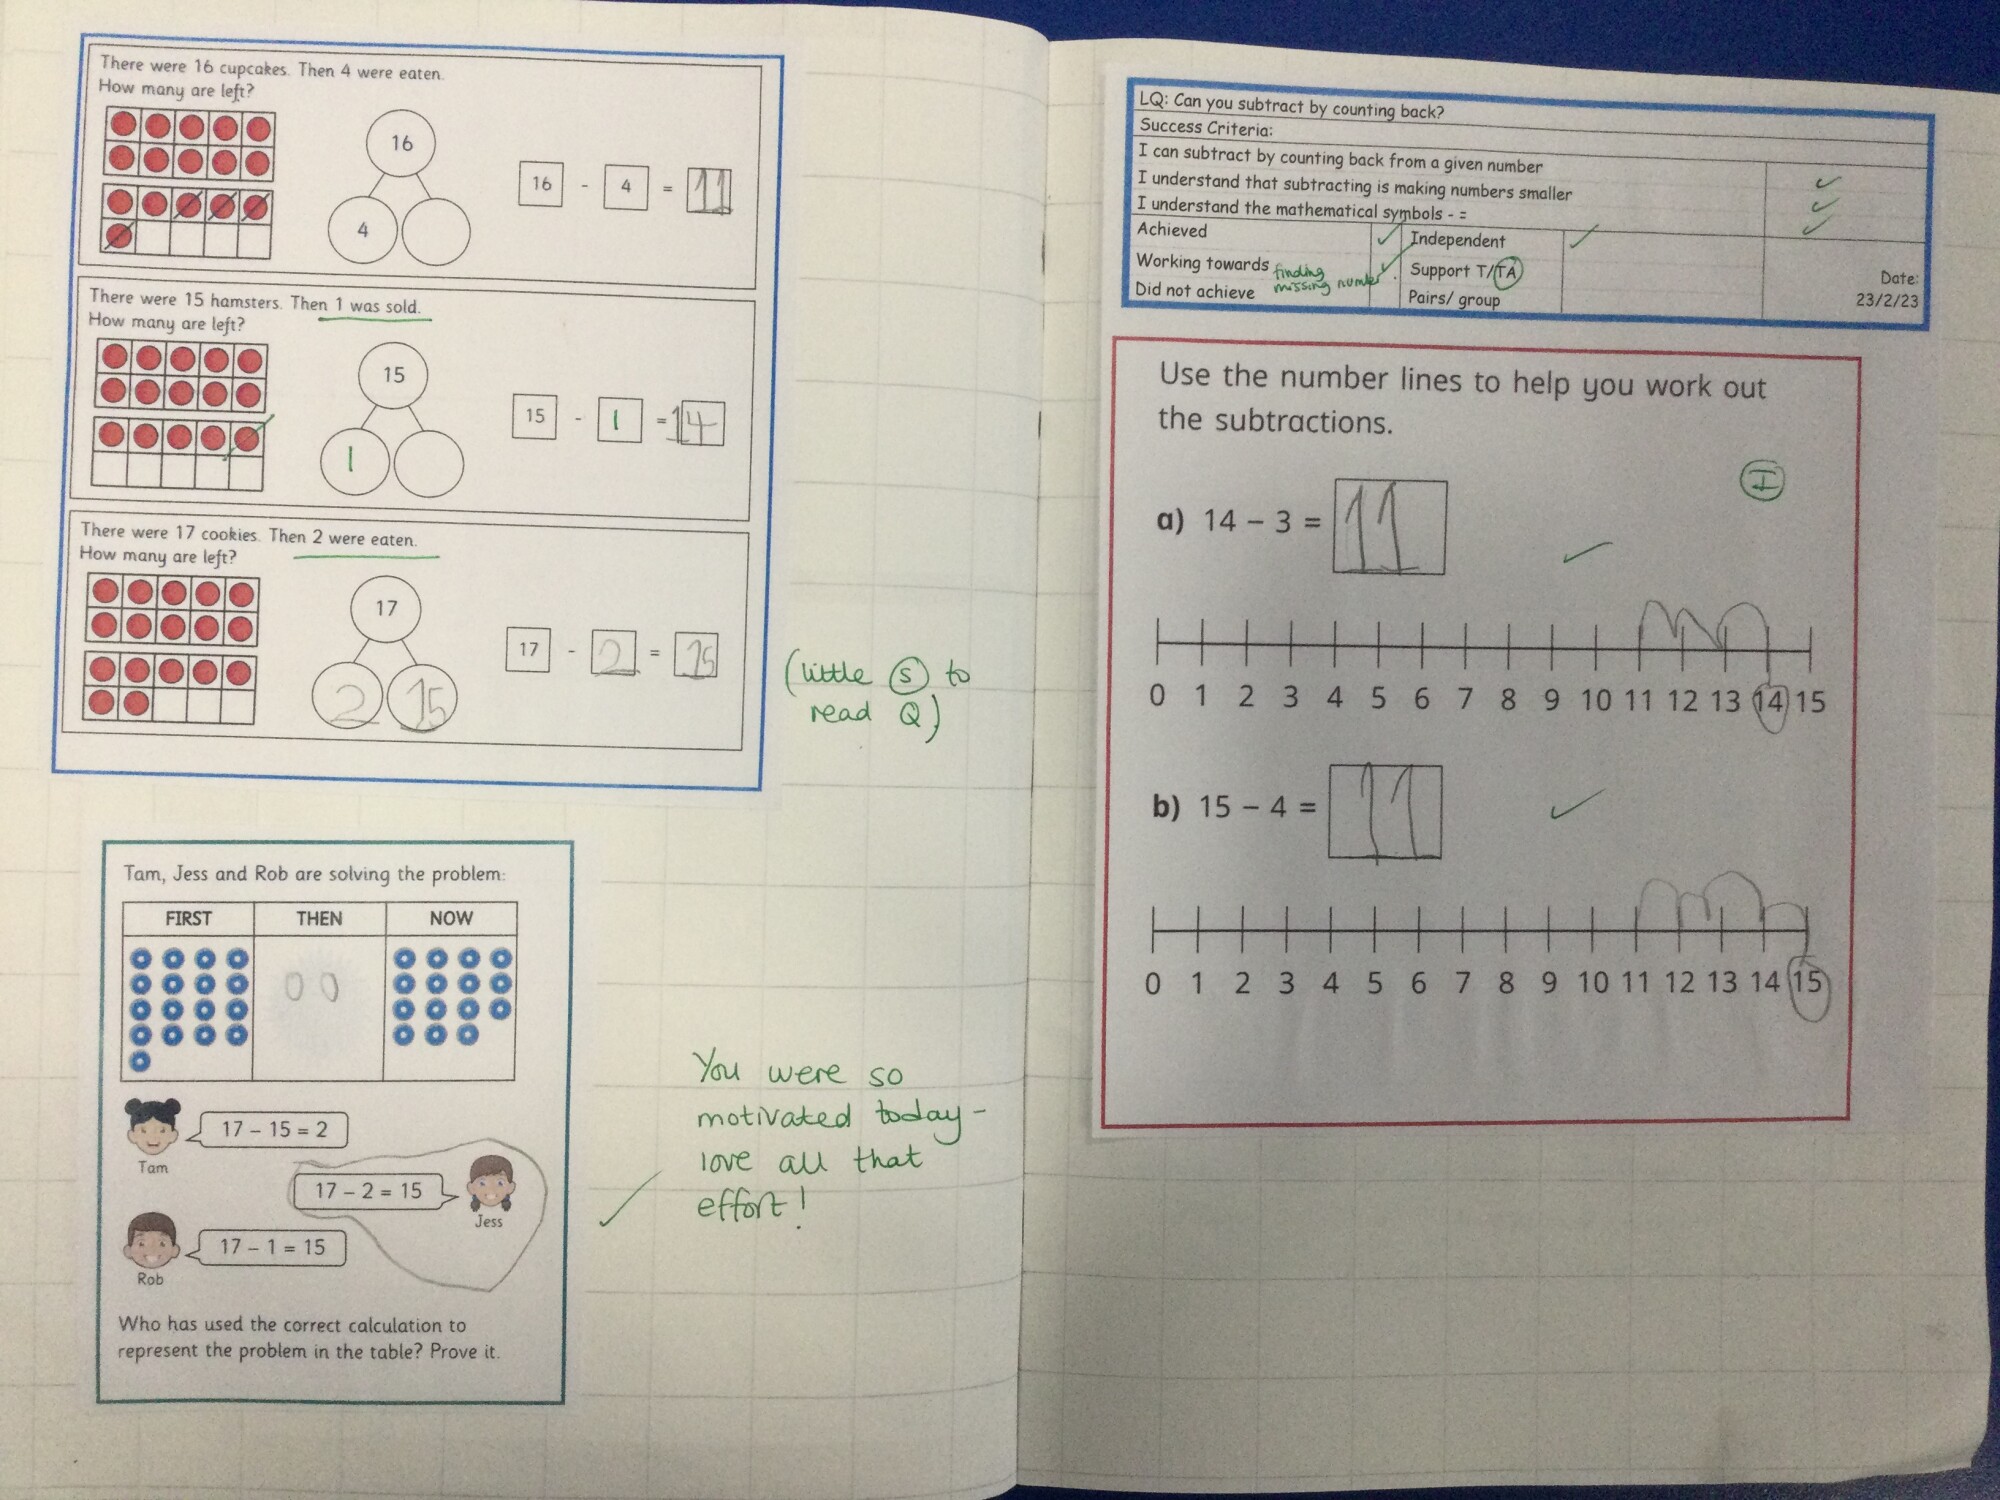 There were 16 cupcakes. Then 4 were eaten.
How many are left?
16
4
16 - 4 = 11
There were 15 hamsters. Then 1 was sold.
How many are left?
15
1
15 - 1 = 14
There were 17 cookies. Then 2 were eaten.
How many are left?
17
2 15
17 - 2 = 15
(little S to
read Q)
Tam, Jess and Rob are solving the problem:
FIRST THEN NOW
0 0
17 – 15 = 2
Tam
17 – 2 = 15
Jess
17 – 1 = 15
Rob
Who has used the correct calculation to
represent the problem in the table? Prove it.
You were so
motivated today -
love all that
effort!
LQ: Can you subtract by counting back?
Success Criteria:
I can subtract by counting back from a given number
I understand that subtracting is making numbers smaller
I understand the mathematical symbols - =
Achieved Independent
Working towards finding Support T/TA
missing number.
Did not achieve Pairs/ group
Date:
23/2/23
Use the number lines to help you work out
the subtractions.
I
a) 14 – 3 = 11
0 1 2 3 4 5 6 7 8 9 10 11 12 13 14 15
b) 15 – 4 = 11
0 1 2 3 4 5 6 7 8 9 10 11 12 13 14 15